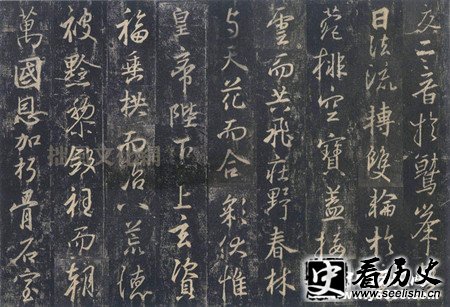 交二音於鷲峯
日法流轉雙輪於
菀排空寶蓋接
雲而共飛莊野春林
與天花而合彩伏惟
皇帝陛下上玄資
福垂拱而治八荒德
被黔黎斂衽而朝
萬國恩加朽骨石室
史 看历史
www.seelishi.cn